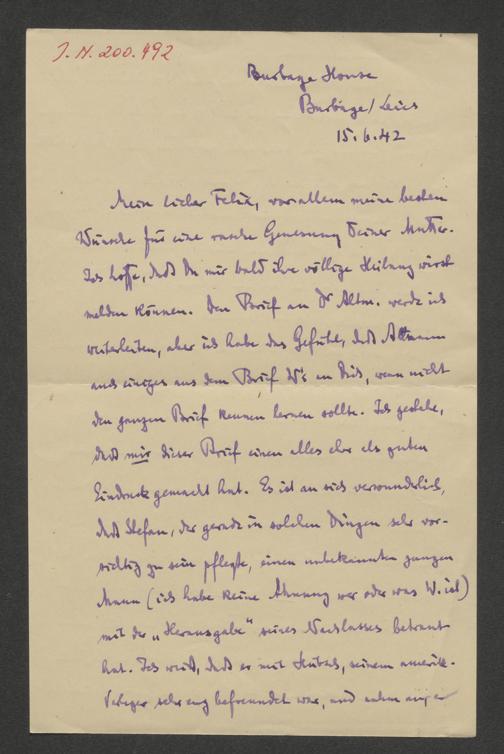 J.N. 200.492
Burbage House
Burbage/Leics
15.6.42
Mein lieber Felix, vor allem meine besten
Wünsche für eine rasche Genesung Deiner Mutter.
Ich hoffe, daß Du mir bald ihre völlige Heilung wirst
melden können. Den Brief an Dr Altm. werde ich
weiterleiten, aber ich habe das Gefühl, daß Altmann
auch einiges aus dem Brief W's an Dich, wenn nicht
den ganzen Brief kennen lernen sollte. Ich gestehe,
daß mir dieser Brief einen alles eher als guten
Eindruck gemacht hat. Es ist an sich verwunderlich,
daß Stefan, der gerade in solchen Dingen sehr vor-
sichtig zu sein pflegte, einen unbekannten jungen
Mann (ich habe keine Ahnung wer oder was W. ist)
mit der „Herausgabe" seines Nachlasses betraut
hat. Ich weiß, daß er mit Hübsch, seinem amerik.
Verleger sehr eng befreundet war, und nahm